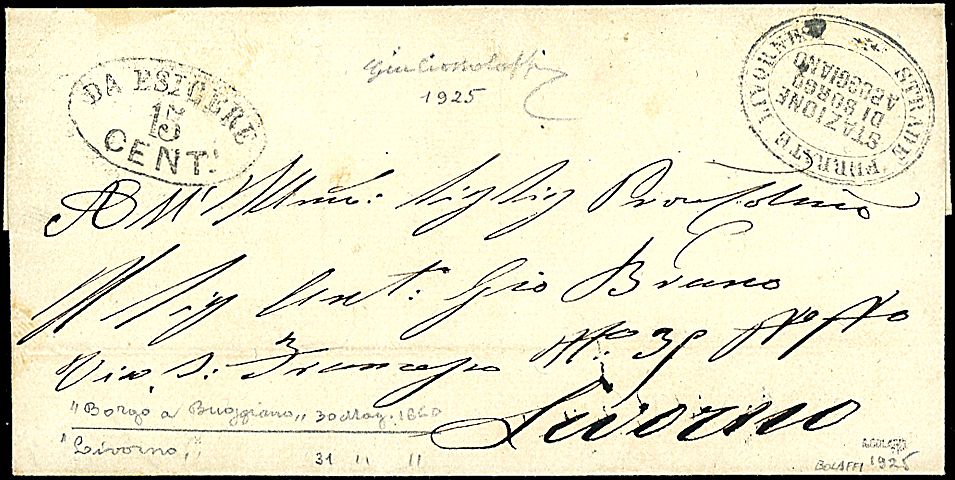 DA ESIGERE
15
CENT.
Giulio Bolaffi
1925
STRADE FERRATE LIVORNESI
STAZIONE
DI BORGO
A BUGGIANO
All' Illmo: Sig Sig Pron Colmo
Il Sig Ant: Gio Bruno
Via S: Francesco No: 35
Livorno
"Borgo a Buggiano,, 30 Mag. 1860
"Livorno,, 31 " "
A. BOLAFFI
BOLAFFI 1925